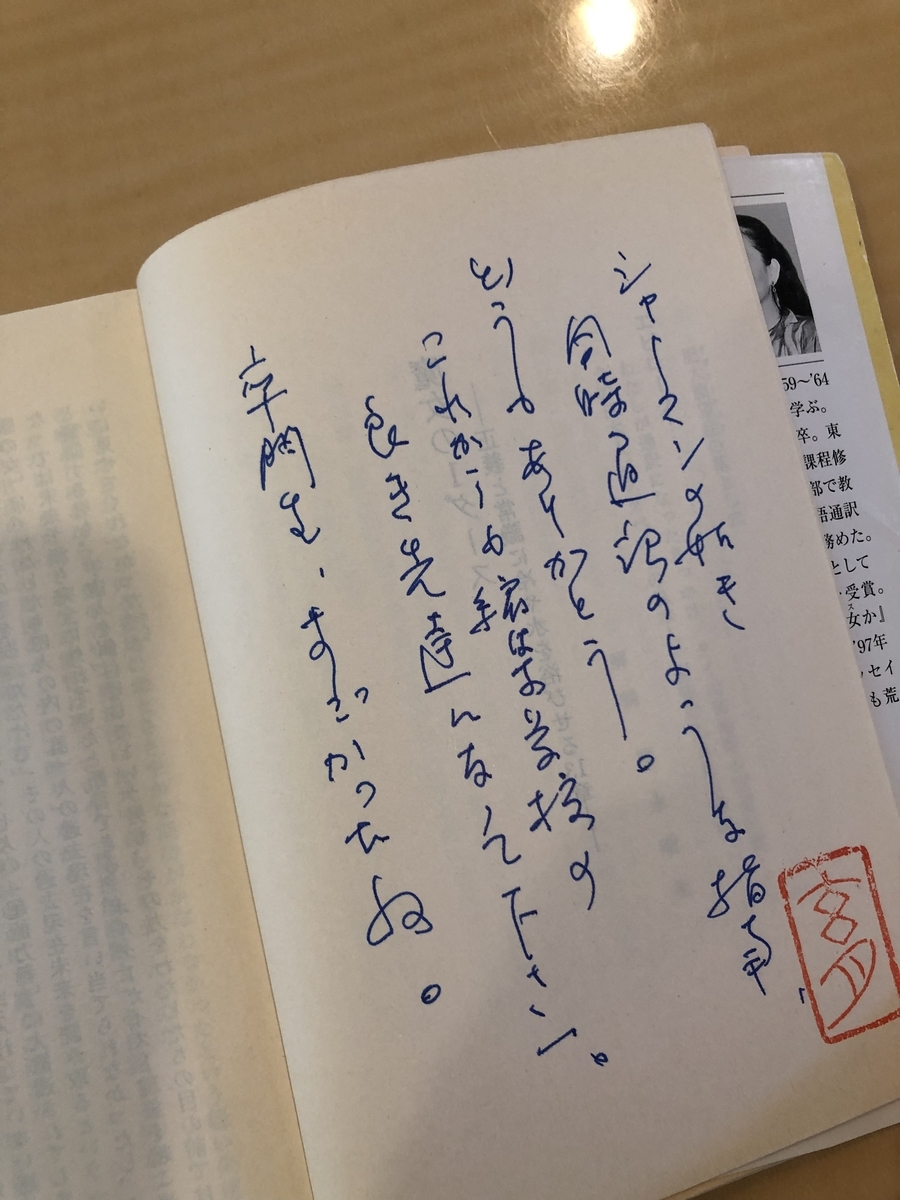 シャーマンの如き
同時通訳のような指揮、
どうもありがとう—。
これからも 学校の
良き先達になって下さい。
すごかったね。
玄月
59～'64
学ぶ。
卒。東
課程修
部で教
語通訳
務めた。
として
受賞。
女か』
ス
'97年
ッセイ
も荒